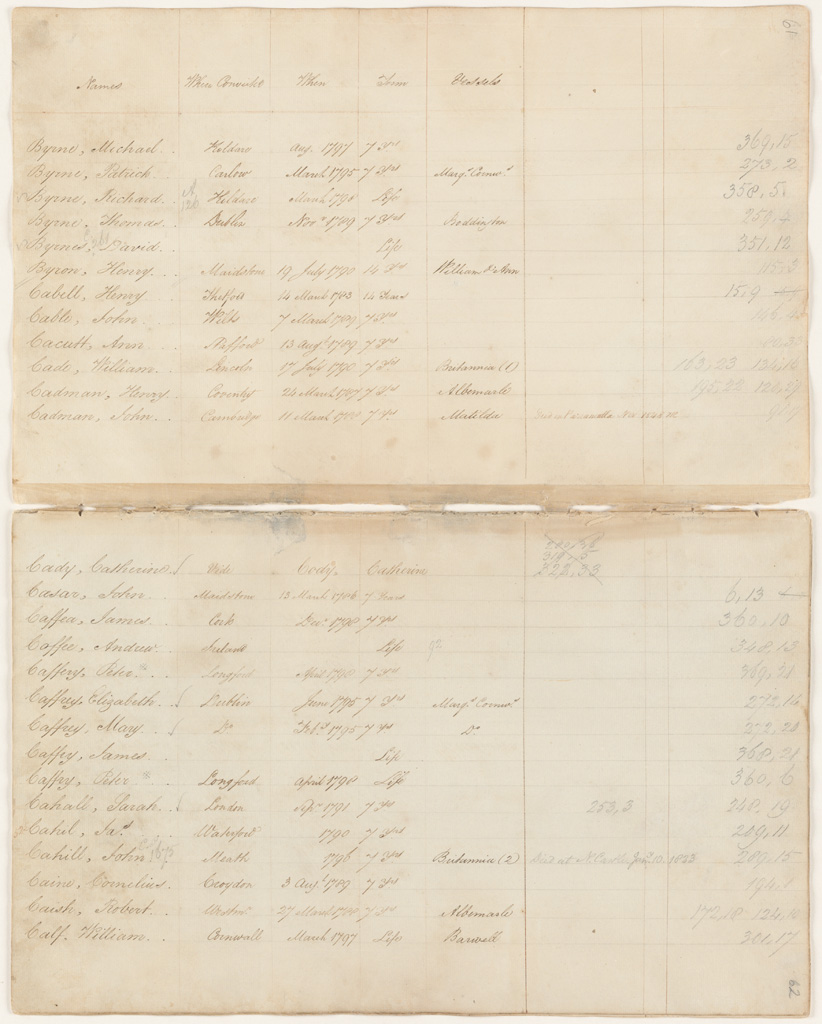 61
Names Where Convicted When Term Vessels
Byrne, Michael Kildare Aug. 1797 7 Yrs 369,15
Byrne, Patrick Carlow March 1795 7 Yrs Marqs Cornws 273,2
Byrne, Richard Kildare March 1798 Life 358,5
Byrne, Thomas Dublin Novr 1789 7 Yrs Boddington 259,4
Byrnes, David Life 351,12
Byron, Henry Maidstone 19 July 1790 14 Yrs William & Ann 115,3
Cabell, Henry Thetford 14 March 1783 14 Years 15,9
Cable, John Wilts 7 March 1789 7 Yrs
Cacutt, Ann Stafford 13 Augt 1789 7 Yrs
Cade, William Lincoln 17 July 1790 7 Yrs Britannia (1) 163,23 134,16
Cadman, Henry Coventry 24 March 1787 7 Yrs Albemarle 195,22 120,29
Cadman, John Cambridge 11 March 1788 7 Yrs Matilda
318,5
322,33
Cady, Catherine Vide Cody, Catherine
Cæsar, John Maidstone 13 March 1786 7 Years 6,13
Caffea, James Cork Decr 1798 7 Yrs 360,10
Caffee, Andrew Ireland Life 92 348,13
Caffery, Peter Longford April 1798 7 Yrs 369,21
Caffrey, Elizabeth Dublin June 1795 7 Yrs Marqs Cornws 272,16
Caffrey, Mary Do Feby 1795 7 Yrs Do 272,20
Caffry, James Life 368,21
Caffry, Peter Longford April 1798 Life 360,6
Cahall, Sarah London Sepr 1791 7 Yrs 253,3 248,19
Cahil, Jas Waterford 1790 7 Yrs 209,11
Cahill, John Meath 1796 7 Yrs Britannia (2) Died at N. Castle Jany 10. 1833 289,15
Caine, Cornelius Croydon 3 Augt 1789 7 Yrs
Caish, Robert Westmr 27 March 1788 7 Yrs Albemarle 172,18 124,10
Calf, William Cornwall March 1797 Life Barwell 301,17
62